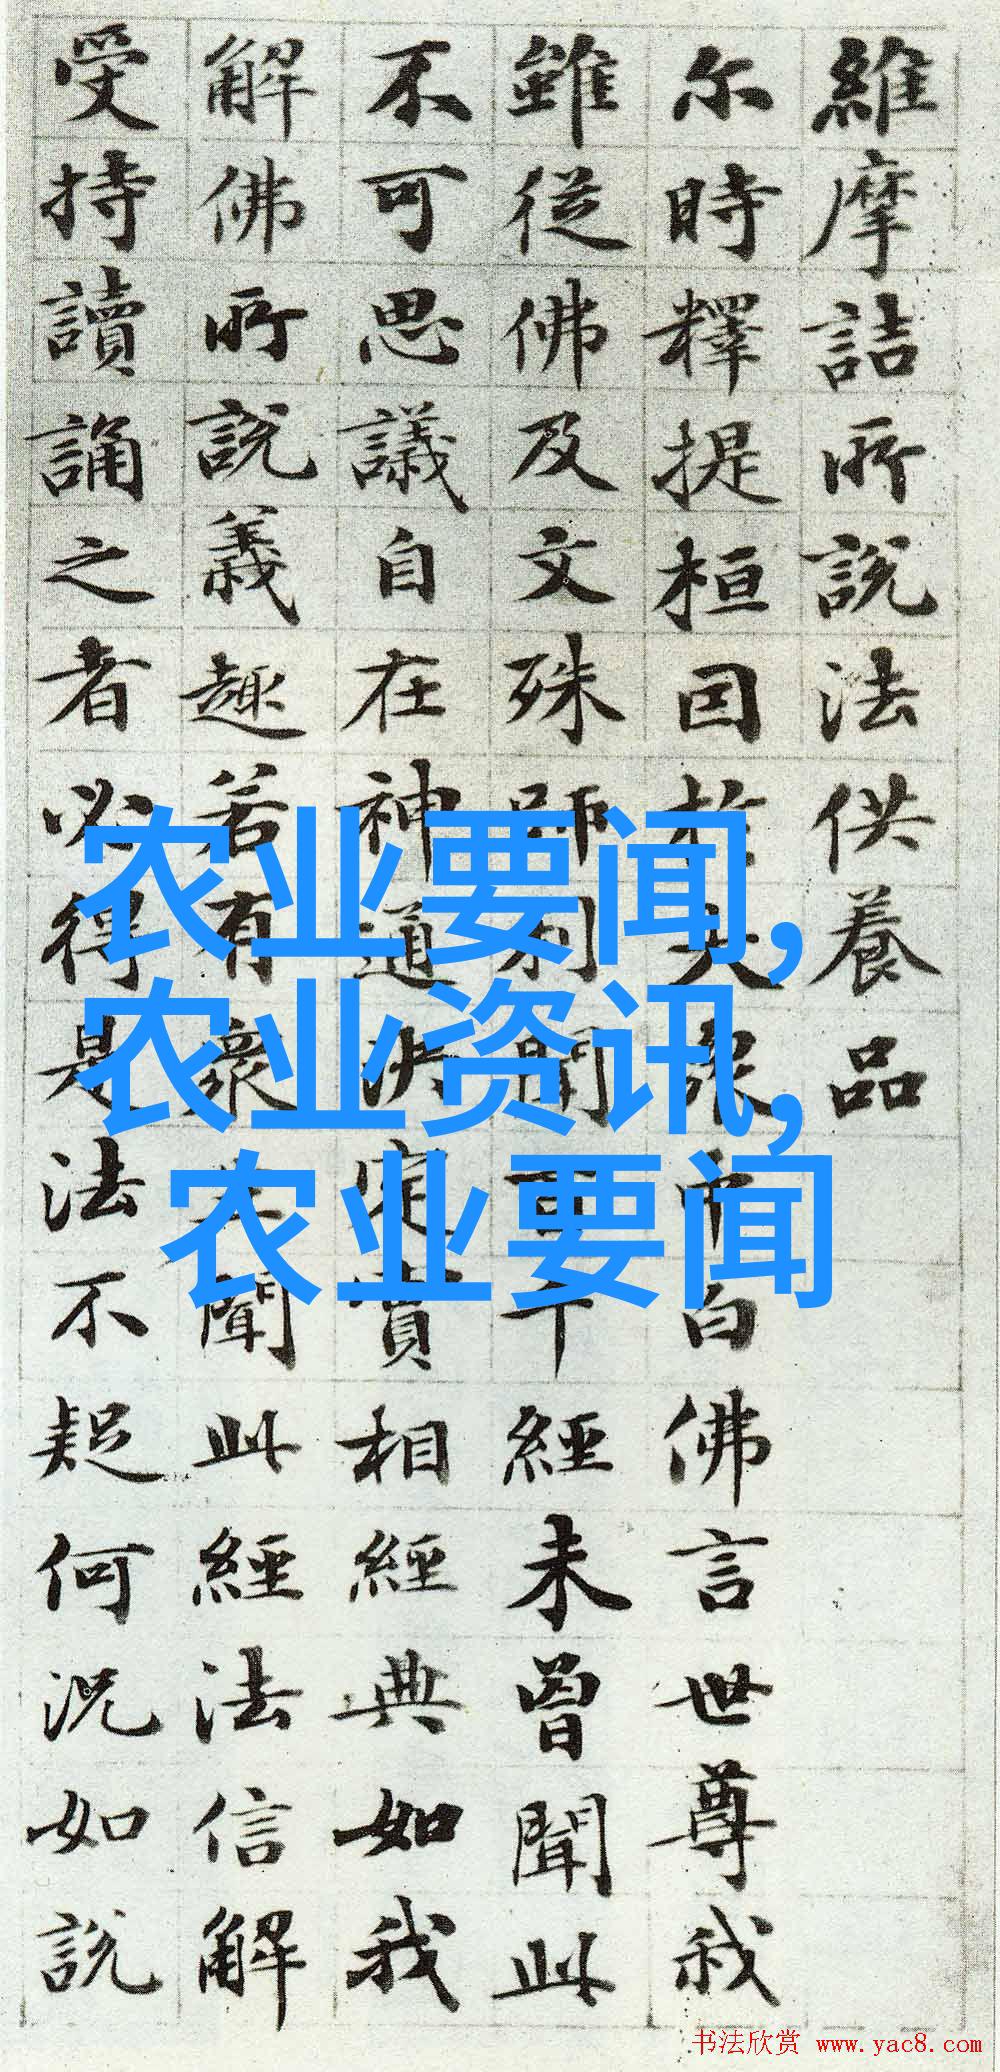 維摩詰所說法供養品
尔時釋提桓因於大衆中白佛言世尊我
雖從佛及文殊師利聞百千經未曾聞此
不可思議自在神通決定實相經典如我
解佛所說義趣若有衆生聞此經法信解
受持讀誦之者必得是法不疑何況如說
农业要闻,
农业资讯,
农业要闻
书法欣赏 www.yac8.com